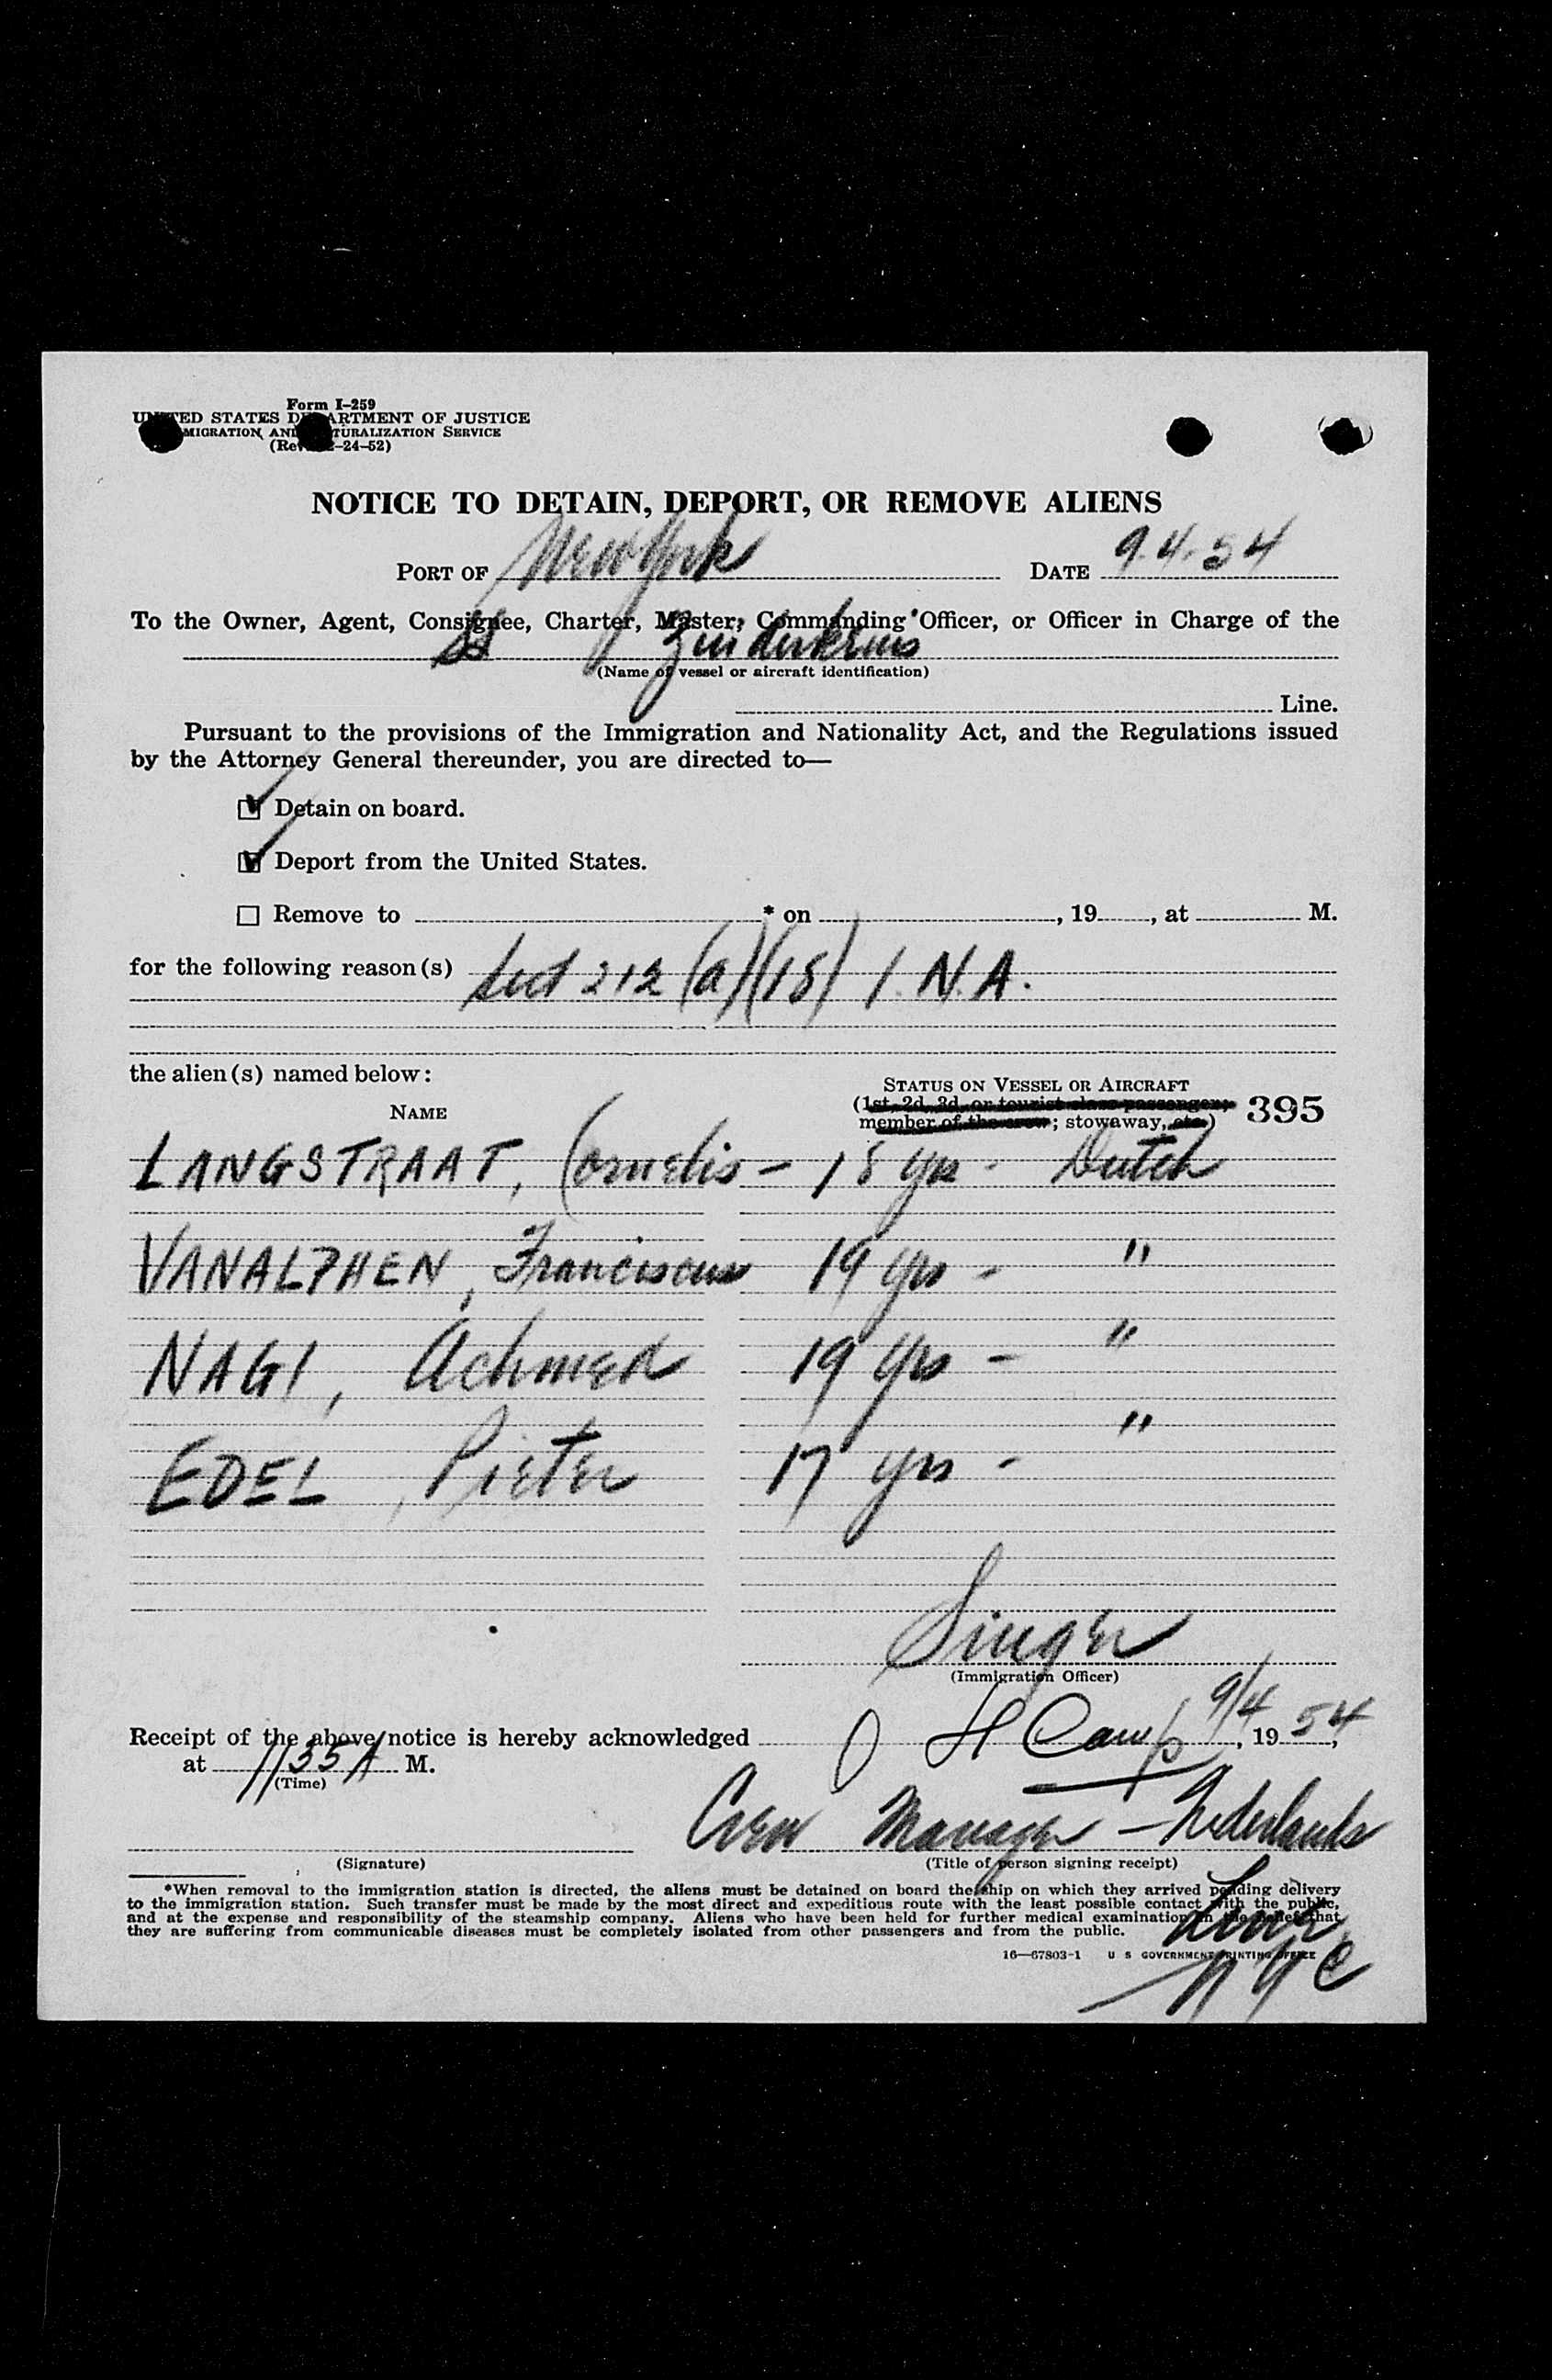 Form I-259
UNITED STATES DEPARTMENT OF JUSTICE
IMMIGRATION AND NATURALIZATION SERVICE
(Rev. 2-24-52)
NOTICE TO DETAIN, DEPORT, OR REMOVE ALIENS
PORT OF New York DATE 9.4.54
To the Owner, Agent, Consignee, Charter, Master, Commanding Officer, or Officer in Charge of the
SS Zuiderkruis
(Name of vessel or aircraft identification)
Line.
Pursuant to the provisions of the Immigration and Nationality Act, and the Regulations issued
by the Attorney General thereunder, you are directed to—
Detain on board.
Deport from the United States.
Remove to * on , 19 , at M.
for the following reason(s) Sect 212 (a)(18) I.N.A.
the alien(s) named below:
STATUS ON VESSEL OR AIRCRAFT
NAME (1st, 2d, 3d, or tourist class passenger; 395
member of the crew; stowaway, etc.)
LANGSTRAAT, Cornelis - 18 yrs - Dutch
VANALPHEN, Franciscus 19 yrs - "
NAGI, Achmed 19 yrs - "
EDEL, Pieter 17 yrs - "
Singer
(Immigration Officer)
Receipt of the above notice is hereby acknowledged H Camp 9/4, 19 54,
at 1135 A M.
(Time)
Crew Manager - Nederlands
(Signature) (Title of person signing receipt)
Line
*When removal to the immigration station is directed, the aliens must be detained on board the ship on which they arrived pending delivery
to the immigration station. Such transfer must be made by the most direct and expeditious route with the least possible contact with the public,
and at the expense and responsibility of the steamship company. Aliens who have been held for further medical examination in the belief that
they are suffering from communicable diseases must be completely isolated from other passengers and from the public.
16—67803-1 U S GOVERNMENT PRINTING OFFICE
NYC